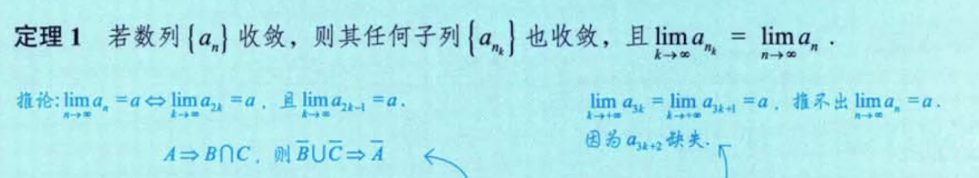 定理1 若数列{aₙ}收敛，则其任何子列{a_{n_k}}也收敛，且lim_{k→∞} a_{n_k} = lim_{n→∞} aₙ .
推论: lim_{n→∞} aₙ = a ⇔ lim_{k→∞} a_{2k} = a，且 lim_{k→∞} a_{2k-1} = a .
A⇒B∩C，则B̅∪C̅⇒A̅
lim_{k→+∞} a_{3k} = lim_{k→+∞} a_{3k+1} = a，推不出 lim_{n→∞} aₙ = a .
因为a_{3k+2}缺失.